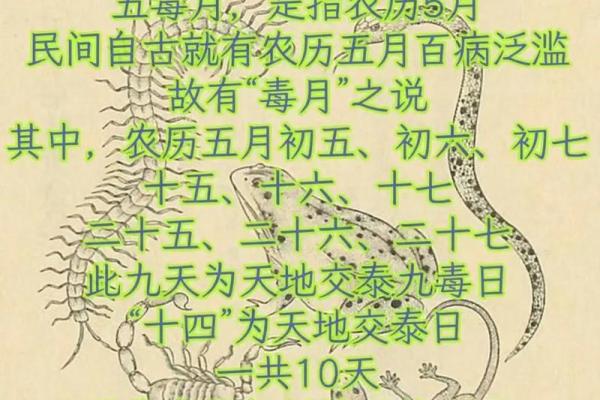 五毒月，是指农历5月
民间自古就有农历五月百病泛滥
故有“毒月”之说
其中，农历五月初五、初六、初七
十五、十六、十七
二十五、二十六、二十七
此九天为天地交泰九毒日
“十四”为天地交泰日
一共10天